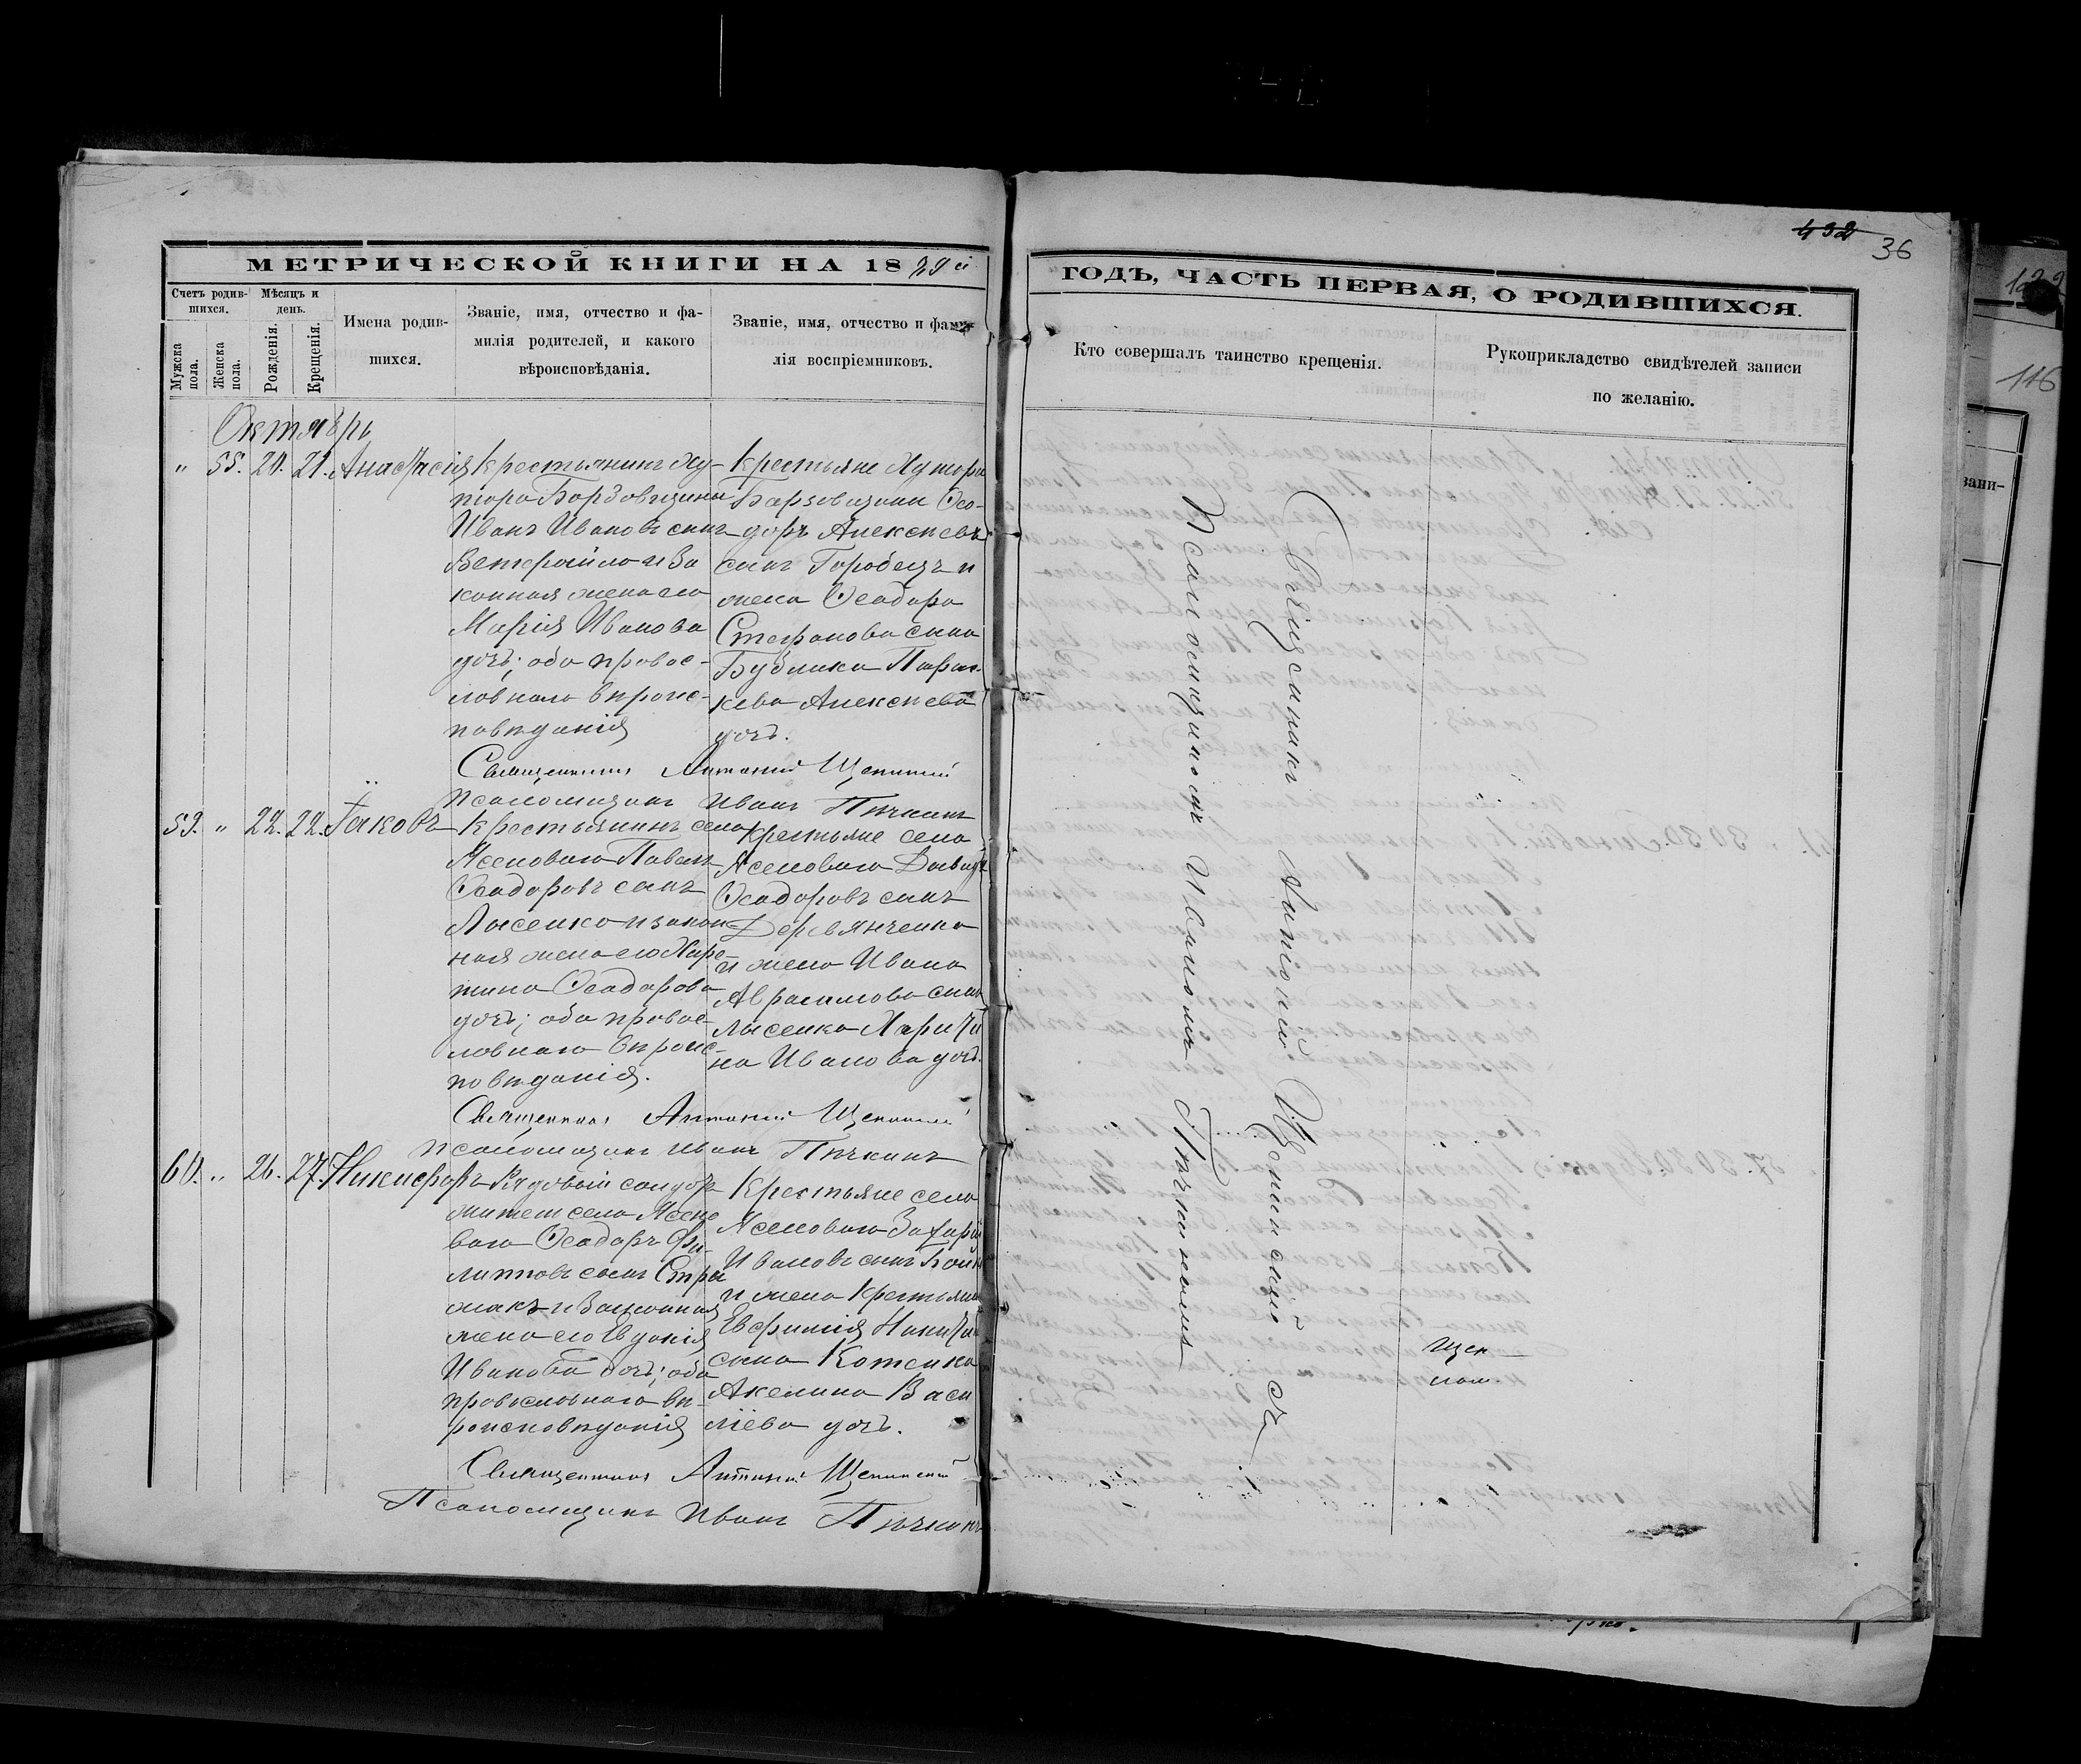 432
36
МЕТРИЧЕСКОЙ КНИГИ НА 18
ГОДЪ, ЧАСТЬ ПЕРВАЯ, О РОДИВШИХСЯ.
Счетъ родив-
шихся.
Мѣсяцъ и
день.
Мужска
пола.
Женска
пола.
Рожденія.
Крещенія.
Имена родив-
шихся.
Званіе, имя, отчество и фа-
милія родителей, и какого
вѣроисповѣданія.
Званіе, имя, отчество и фами-
лія воспріемниковъ.
Кто совершалъ таинство крещенія.
Рукоприкладство свидѣтелей записи
по желанію.
Октябрь
" 55. 20. 21. Анастасія
Крестьянинъ Ху-
тора Борзовщины
Иванъ Ивановъ сынъ
Ветройло и за
конная жена его
Марія Иванова
дочь; оба правос-
лавнаго вѣроис-
повѣданія
Крестьяне Хутора
Борзовщины Ѳео-
доръ Алексѣевъ
сынъ Городецъ и
жена Ѳеодора
Стефанова сына
Бублика Парас-
кева Алексѣева
дочь.
Священникъ Антоній
Псаломщикъ Иванъ Пѣчкинъ
59. " 22. 22. Іаковъ
Крестьянинъ села
Ясеноваго Павелъ
Ѳеодоровъ сынъ
Лысенко и закон
ная жена его Хари
тина Ѳеодорова
дочь; оба правос-
лавнаго вѣроис-
повѣданія.
Крестьяне села
Ясеноваго Давидъ
Ѳеодоровъ сынъ
Деревянченко
и жена Ивана
Аврамова сына
Лысенка Харити
на Иванова дочь.
Священникъ Антоній
Псаломщикъ Иванъ Пѣчкинъ
60. " 26. 27. Никифоръ
Рядовый солдатъ
житель села Ясено
ваго Ѳеодоръ Фи-
липповъ сынъ
и Законная
жена его Евдокія
Иванова дочь; оба
православнаго вѣ-
роисповѣданія
Крестьяне села
Ясеноваго Захарій
Ивановъ сынъ
и жена Крестьянина
Никиты
сына Котенка
Акелина Васи
ліева дочь.
Священникъ Антоній
Псаломщикъ Иванъ Пѣчкинъ
Священникъ Антоній
Псаломщикъ Иванъ Пѣчкинъ
122
116